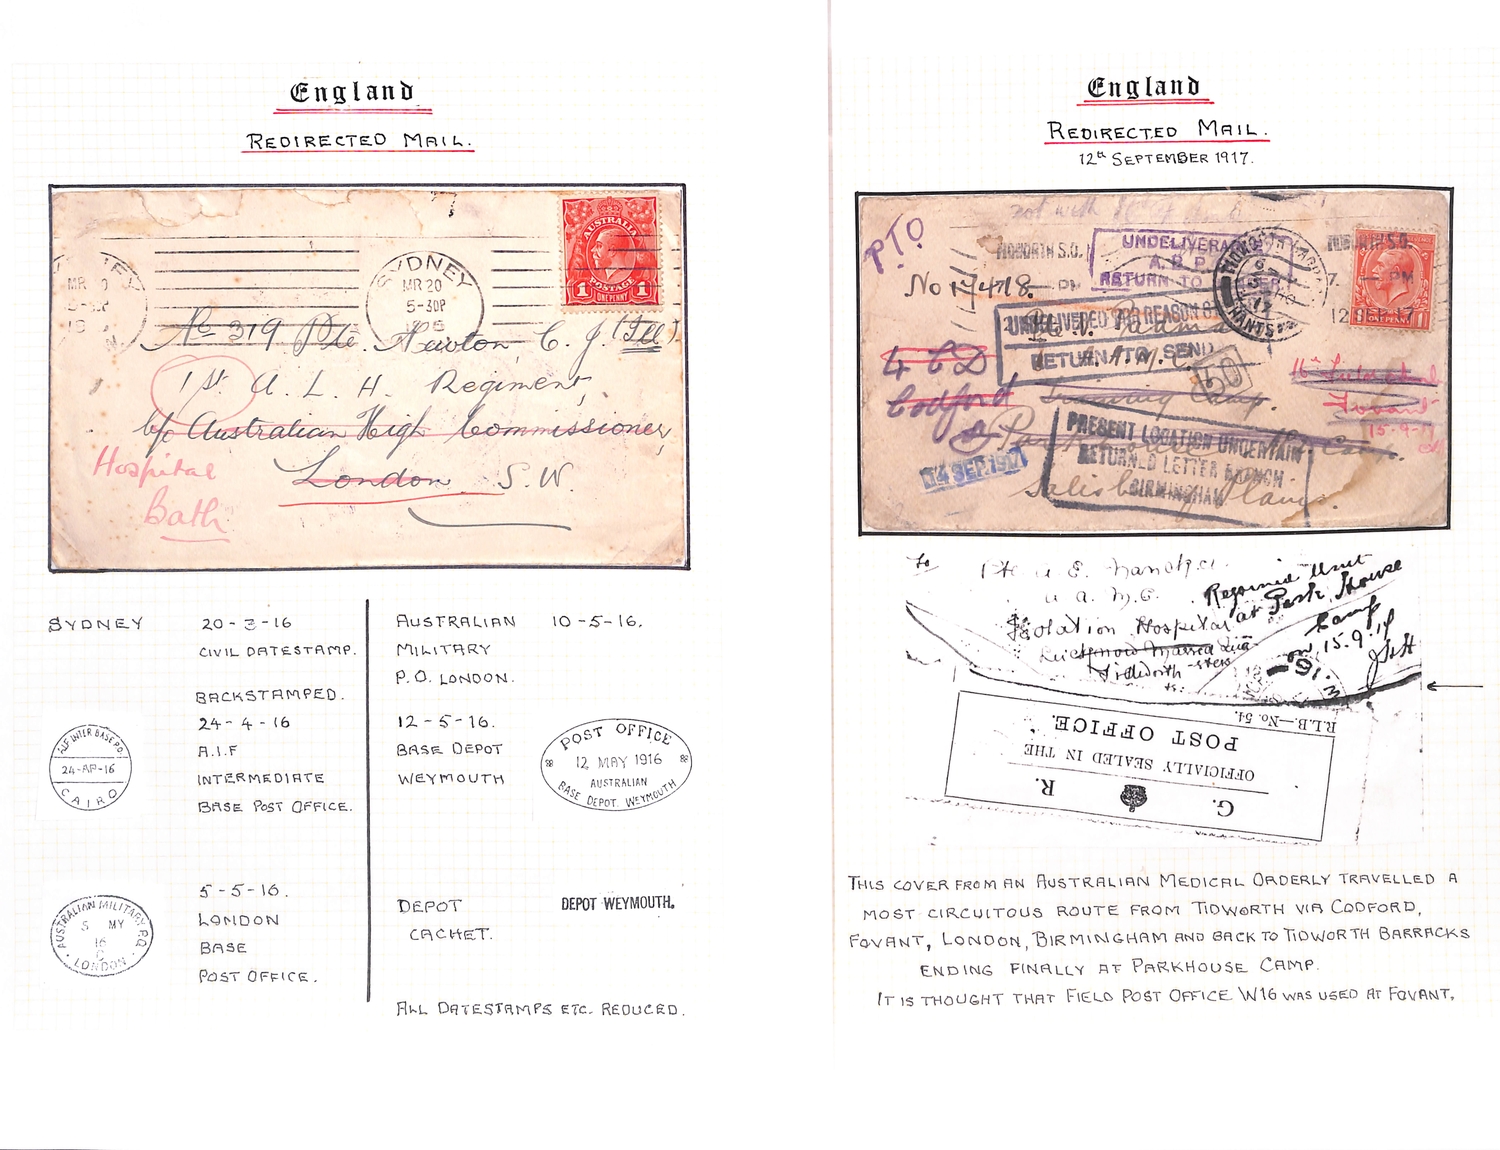 England
REDIRECTED MAIL.
SYDNEY
MR 20
5-30P
AUSTRALIA
POSTAGE
1 ONE PENNY 1
No 319 Pte. Newton, C. J. (Ill).
1st A. L. H. Regiment,
c/o Australian High Commissioner,
London S.W.
Hospital
Bath
SYDNEY
20-3-16
CIVIL DATESTAMP.
BACKSTAMPED.
24-4-16
A.I.F
INTERMEDIATE
BASE POST OFFICE.
AIF INTER BASE P.O.
24-AP-16
CAIRO
5-5-16.
LONDON
BASE
POST OFFICE.
AUSTRALIAN MILITARY P.O.
5 MY
16
C
LONDON
AUSTRALIAN 10-5-16.
MILITARY
P.O. LONDON.
12-5-16.
BASE DEPOT
WEYMOUTH
POST OFFICE
12 MAY 1916
AUSTRALIAN
BASE DEPOT. WEYMOUTH
DEPOT
CACHET.
DEPOT WEYMOUTH.
ALL DATESTAMPS ETC. REDUCED.
England
REDIRECTED MAIL.
12th SEPTEMBER 1917.
PTO
not with
UNDELIVERA
RETURN TO
No 17478.
UNDELIVERED FOR REASON
RETURN TO SEND
4 CD
Codford
Training Camp.
12 SEP 17
ONE PENNY
Fovant
15-9-17
PRESENT LOCATION UNCERTAIN
RETURNED LETTER BRANCH
BIRMINGHAM
14 SEP 1917
Camp.
Salisbury Plains.
To Pte
A. A. M. C.
Isolation Hospital
Tidworth
Rejoined Unit
at Park House
Camp
on 15.9.17
R.L.B.—No. 54.
POST OFFICE.
OFFICIALLY SEALED IN THE
G. R.
THIS COVER FROM AN AUSTRALIAN MEDICAL ORDERLY TRAVELLED A
MOST CIRCUITOUS ROUTE FROM TIDWORTH VIA CODFORD,
FOVANT, LONDON, BIRMINGHAM AND BACK TO TIDWORTH BARRACKS
ENDING FINALLY AT PARKHOUSE CAMP.
IT IS THOUGHT THAT FIELD POST OFFICE W16 WAS USED AT FOVANT.